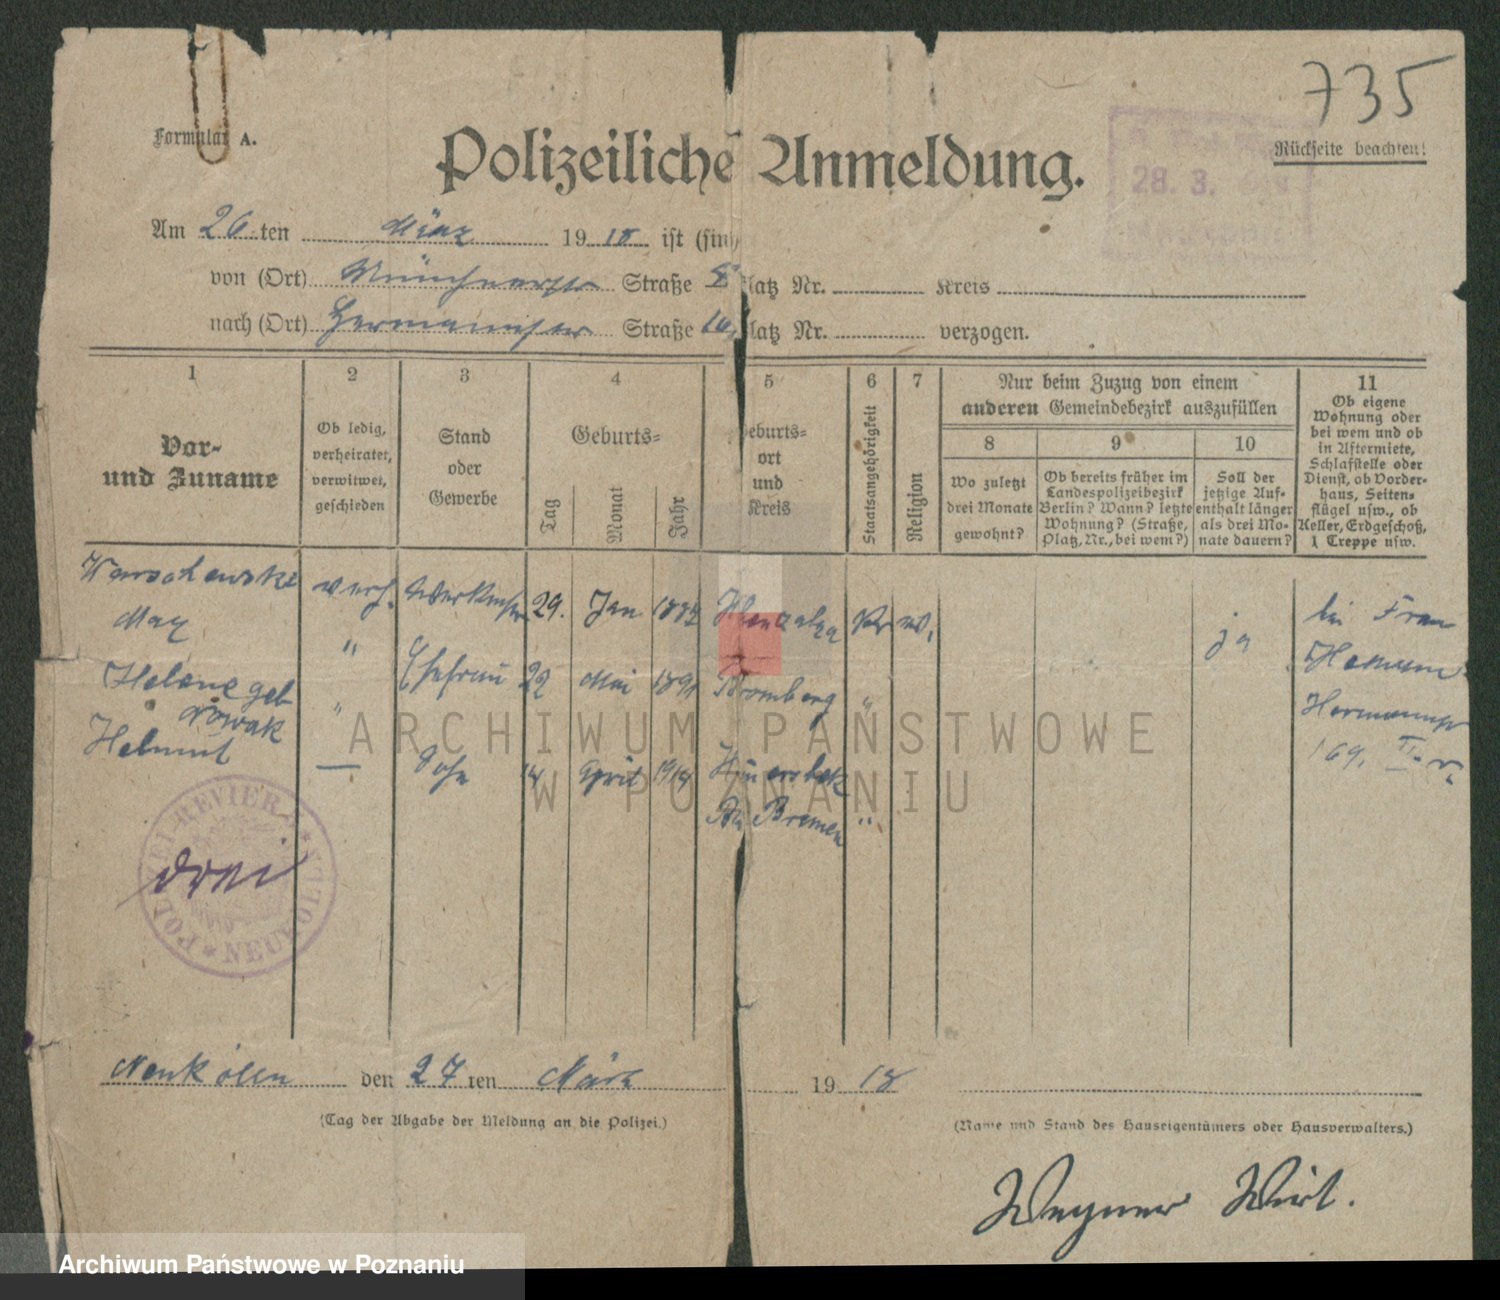 735
Formular A.
Polizeiliche Anmeldung.
Rückseite beachten!
28. 3.
Am 26 ten März 1918 ist (sin
von (Ort) Münchnerstr Straße latz Nr. Kreis
nach (Ort) Hermannstr Straße latz Nr. verzogen.
1
Vor-
und Zuname
2
Ob ledig,
verheiratet,
verwitwet,
geschieden
3
Stand
oder
Gewerbe
4
Geburts-
Tag
Monat
Jahr
5
eburts-
ort
und
Kreis
6
Staatsangehörigkeit
7
Religion
Nur beim Zuzug von einem
anderen Gemeindebezirk auszufüllen
8
Wo zuletzt
drei Monate
gewohnt?
9
Ob bereits früher im
Landespolizeibezirk
Berlin? Wann? letzte
Wohnung? (Straße,
Platz, Nr., bei wem?)
10
Soll der
jetzige Auf-
enthalt länger
als drei Mo-
nate dauern?
11
Ob eigene
Wohnung oder
bei wem und ob
in Aftermiete,
Schlafstelle oder
Dienst, ob Vorder-
haus, Seiten-
flügel usw., ob
Keller, Erdgeschoß,
1 Treppe usw.
Warschewski verh. 29. Jan
Max
Helene geb " Ehefrau 22 Mai 1891 Bromberg "
Nowak
Helmut — Sohn 14 April 1914
Bremen "
ja
bei Frau
Hermannstr
169, II. r.
POLIZEI-REVIER * NEUKÖLLN *
drei
Neukölln den 27 ten März 1918
(Tag der Abgabe der Meldung an die Polizei.)
(Name und Stand des Hauseigentümers oder Hausverwalters.)
Wegner Wirt.
ARCHIWUM PAŃSTWOWE
W POZNANIU
Archiwum Państwowe w Poznaniu